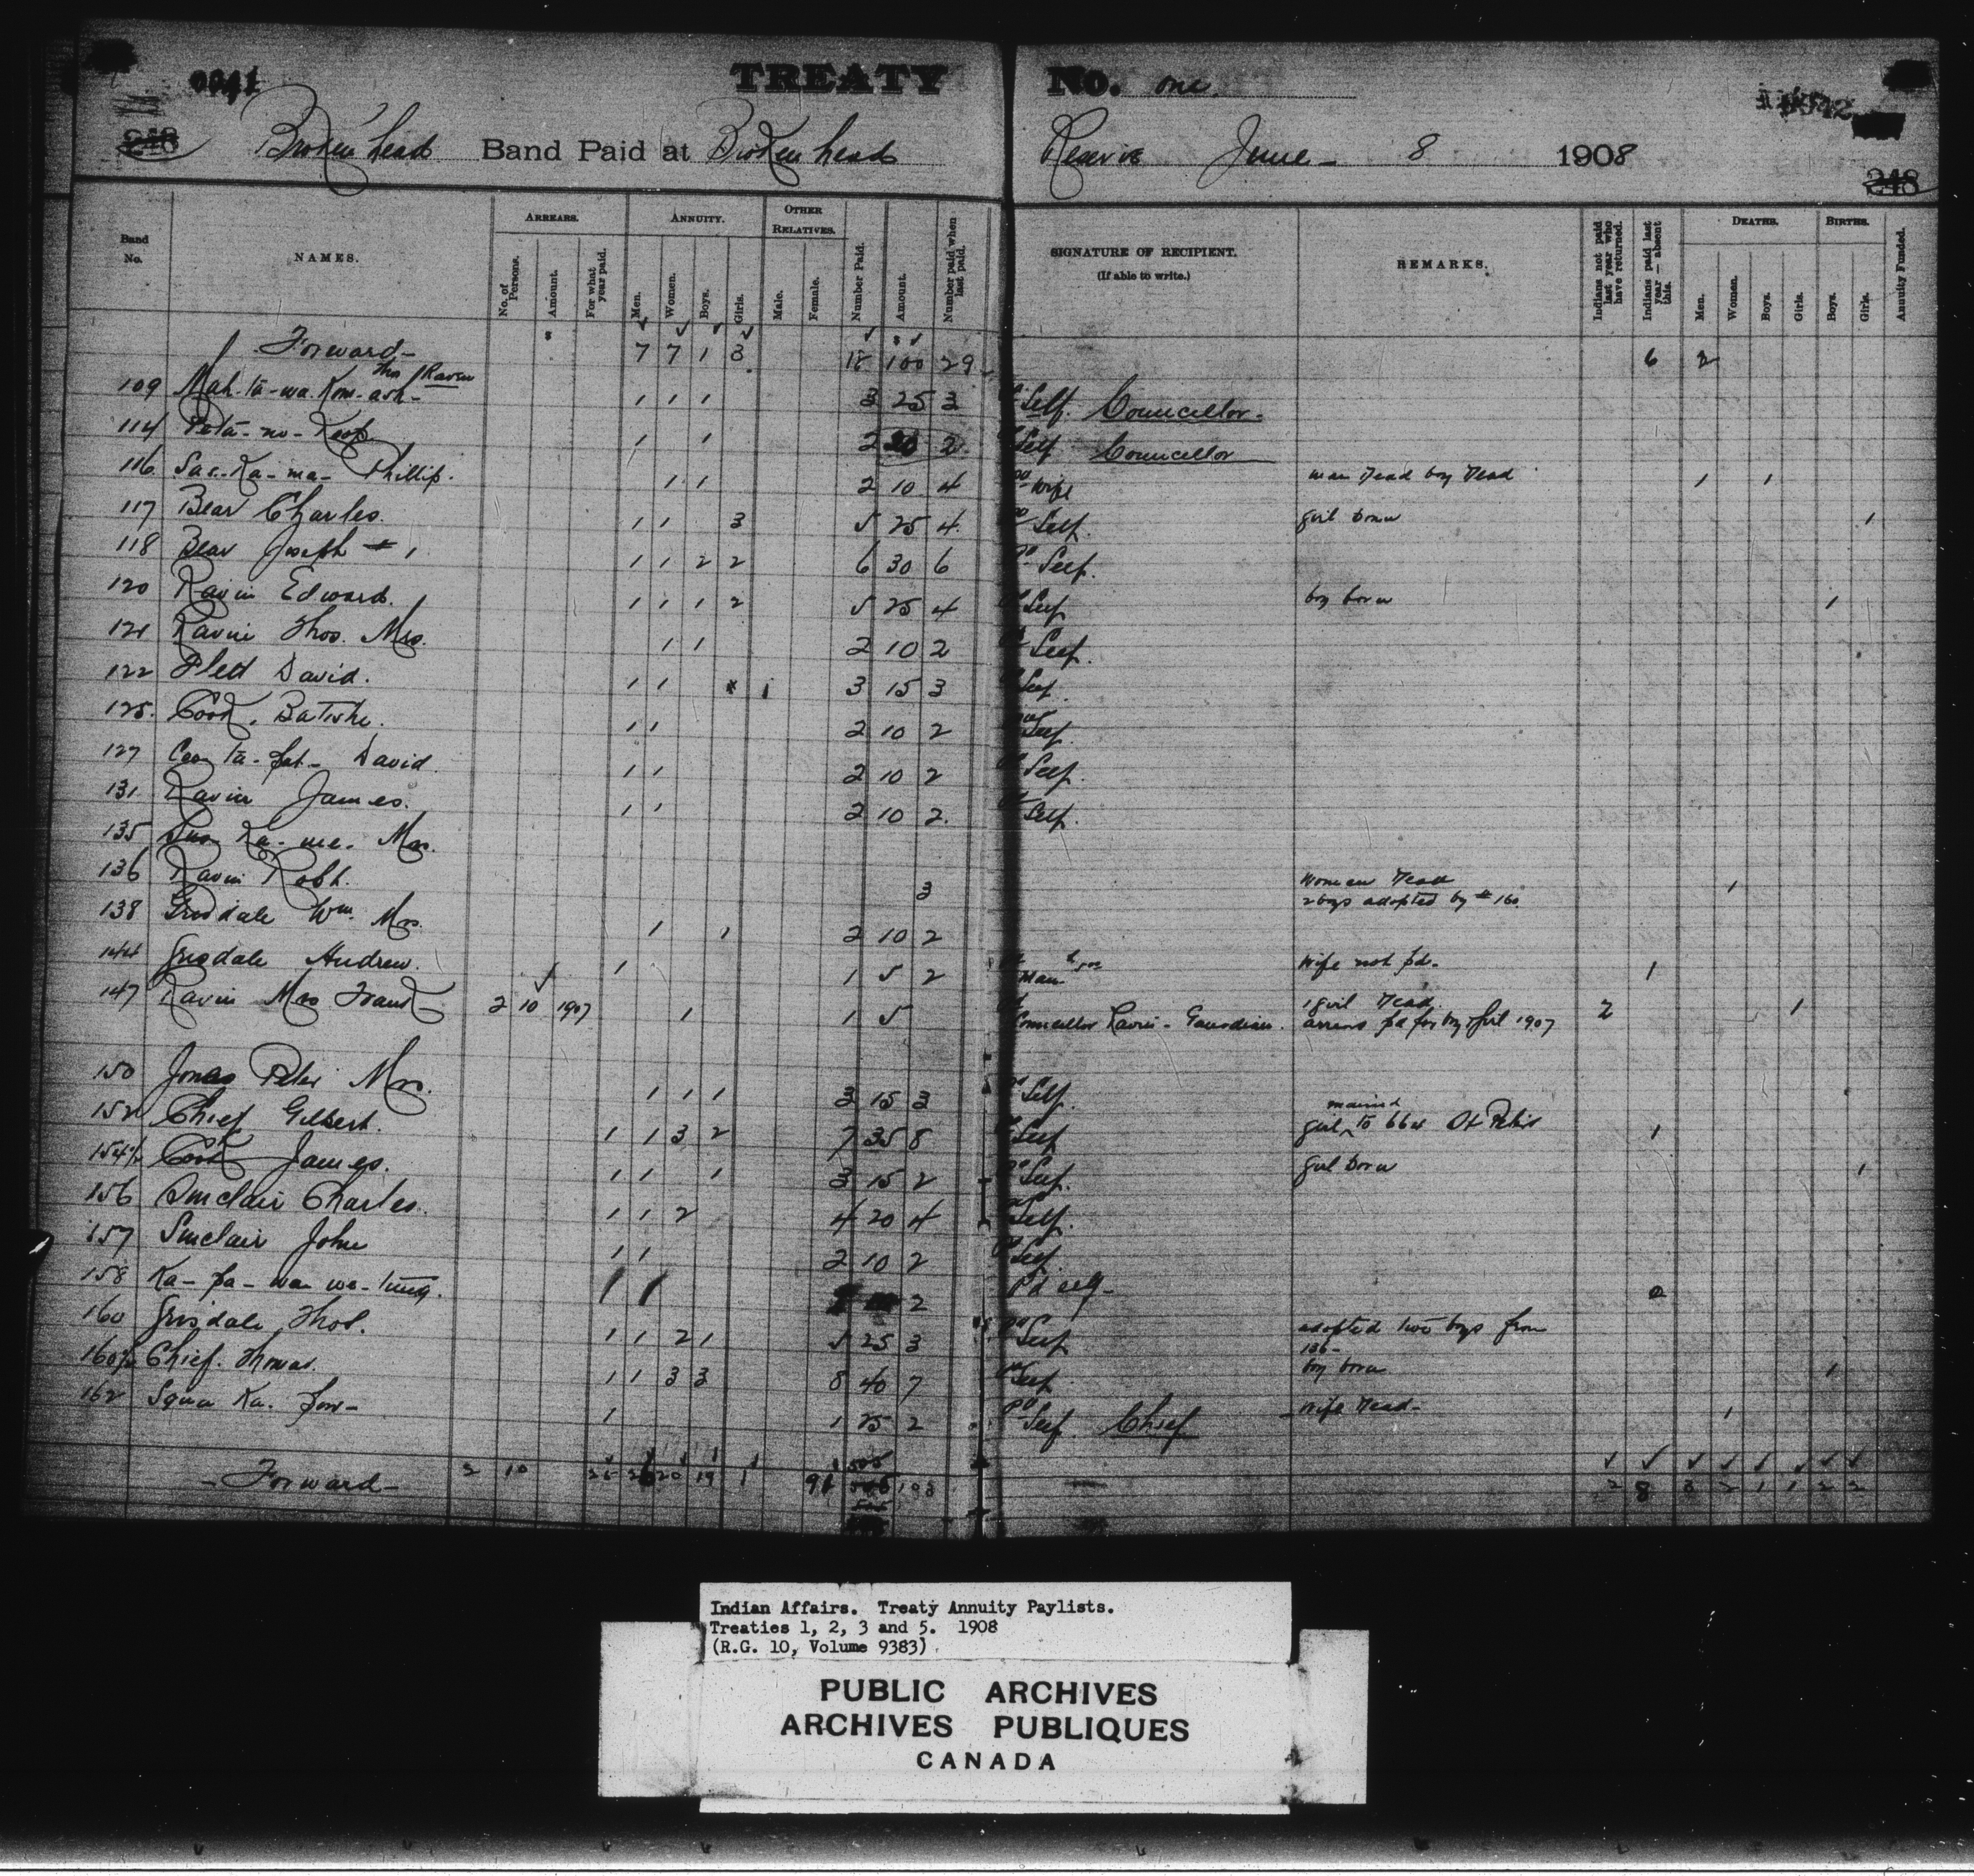 0041
TREATY No. one.
248 Broken head Band Paid at Broken head Reserve June 8 1908
248
Band No. NAMES. ARREARS. No. of Persons. Amount. For what year paid. ANNUITY. Men. Women. Boys. Girls. OTHER RELATIVES. Male. Female. Number Paid. Amount. Number paid when last paid. SIGNATURE OF RECIPIENT. (If able to write.) REMARKS. Indians not paid last year who have returned. Indians paid last year — absent this. DEATHS. Men. Women. Boys. Girls. BIRTHS. Boys. Girls. Annuity Funded.
Forward 7 7 1 3 18 100 29 6 2
Thos Raven
109 Mah-ta-wa-Kom-ash- 1 1 1 3 25 3 Self. Councillor
114 Peta-no-Keesh 1 1 2 20 2 Self Councillor
116 Sac-Ka-ma- Phillip. 1 1 2 10 4 Wife man dead boy dead 1 1
117 Bear Charles. 1 1 3 5 25 4 Self. girl born 1
118 Bear Joseph # 1 1 1 2 2 6 30 6 Pd Self.
120 Ravin Edward. 1 1 1 2 5 25 4 Self boy born 1
121 Ravin Thos. Mrs. 1 1 2 10 2 Self.
122 Flett David. 1 1 1 3 15 3 Self.
125. Cook, Batishe. 1 1 2 10 2 Self.
127 David. 1 1 2 10 2 Self.
131 Ravin James. 1 1 2 10 2 Self.
135 Ka-me. Mrs.
136 Ravin Robt. 3 Woman dead 1
2 boys adopted by # 160.
138 Grisdale Wm. Mrs. 1 1 2 10 2
144 Grisdale Andrew. 1 1 5 2 Man Wife not pd. 1
147 Ravin Mrs Frank 2 10 1907 1 1 5 Councillor Ravin - Guardian. 1 girl dead. 2 1
arrears pd for boy & girl 1907
150 Jonas Peter Mrs. 1 1 1 3 15 3 Self.
152 Chief Gilbert. 1 1 3 2 7 35 8 Self girl married to 664 St Peters 1
154½ Cook James. 1 1 1 3 15 2 Self. girl born 1
156 Sinclair Charles. 1 1 2 4 20 4 Self.
157 Sinclair John 1 1 2 10 2 Self.
158 Ka-pa-wan-we-tung. 1 1 2 Pd self 2
160 Grisdale Thos. 1 1 2 1 5 25 3 Self adopted two boys from
136-
160½ Chief. Thomas. 1 1 3 3 8 40 7 Self boy born 1
162 Squa Ka. 1 1 25 2 Self. Chief Wife dead 1
Forward 2 10 25 20 19 1 91 103 2 8 3 2 1 1 2 2
Indian Affairs. Treaty Annuity Paylists.
Treaties 1, 2, 3 and 5. 1908
(R.G. 10, Volume 9383)
PUBLIC ARCHIVES
ARCHIVES PUBLIQUES
CANADA